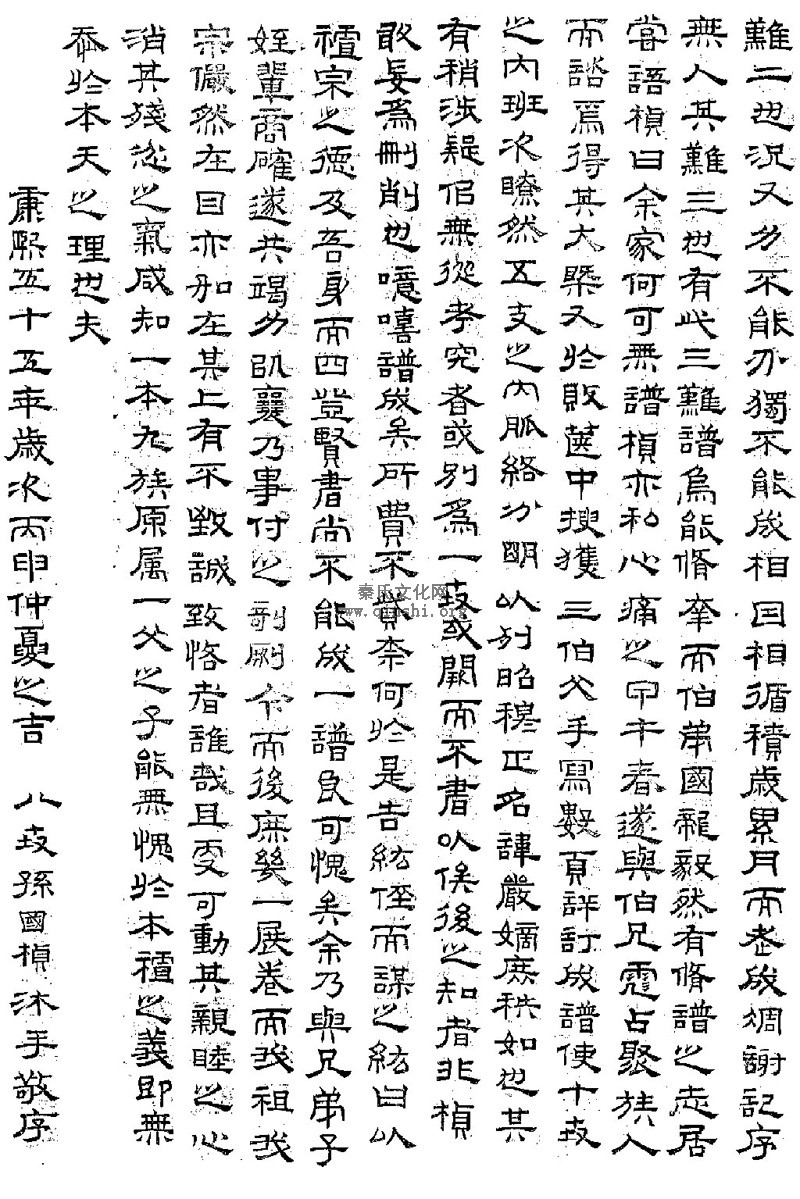 難二也況又力不能办獨不能成相因相循積歲累月而老成凋謝記序
無人其難三也有此三難譜烏能脩孥而伯弟國龍毅然有脩譜之志居
嘗語楨曰余家何可無譜楨亦私心痛之甲午春遂與伯兄霑占聚族人
而諮焉得其大槩又於敗篋中搜獲三伯父手寫數頁詳訂成譜使十世
之內班次瞭然五支之內脈絡分明以列昭穆正名諱嚴嫡庶秩如也其
有稍涉疑佀無從考究者或別為一世或闕而不書以俟後之知者非楨
敢妄為刪削也噫嘻譜成矣所費不貲柰何於是告紘侄而謀之紘曰以
禮宗之德及吾身而四登賢書尚不能成一譜良可愧矣余乃與兄弟子
姪輩商確遂共竭力勷乃事付之剞劂今而後庶幾一展卷而我祖我
宗儼然在目亦如在其上有不致誠致恪者誰哉且更可動其親睦之心
消其殘忿之氣咸知一本九族原属一父之子能無愧於本禮之義即無
忝於本天之理也夫
康熙五十五年歲次丙申仲夏之吉 八世孫國楨沐手敬序
秦氏文化网
www.qinshi.org